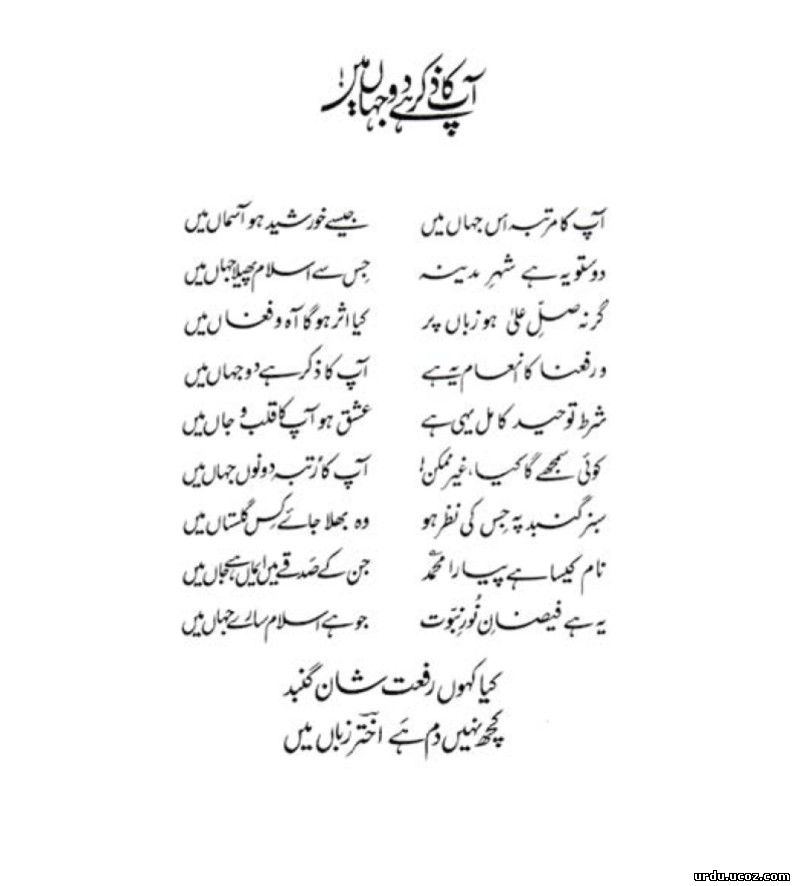 آپ کا ذکر ہے دو جہاں میں
آپ کا مرتبہ اس جہاں میں جیسے خورشید ہو آسماں میں
دوستو یہ ہے شہرِ مدینہ جِس سے اسلام پھیلا جہاں میں
گر نہ صلِّ علیٰ ہو زباں پر کیا اثر ہوگا آہ و فغاں میں
ورفعنا کا انعام یہ ہے آپ کا ذکر ہے دو جہاں میں
شرط توحید کامل یہی ہے عشق ہو آپ کا قلب و جاں میں
کوئی سمجھے گا کیا، غیر ممکن! آپ کا رُتبہ دونوں جہاں میں
سبز گنبد پہ جِس کی نظر ہو وہ بھلا جائے کِس گلستاں میں
نام کیسا ہے پیارا محمدؐ جن کے صَدقے میں ایماں ہے جاں میں
یہ ہے فیضانِ نُورِ نبوّت جو ہے اسلام سارے جہاں میں
کیا کہوں رفعت شان گنبد
کچھ نہیں دم ہَے اخترؔ زباں میں
urdu.ucoz.com